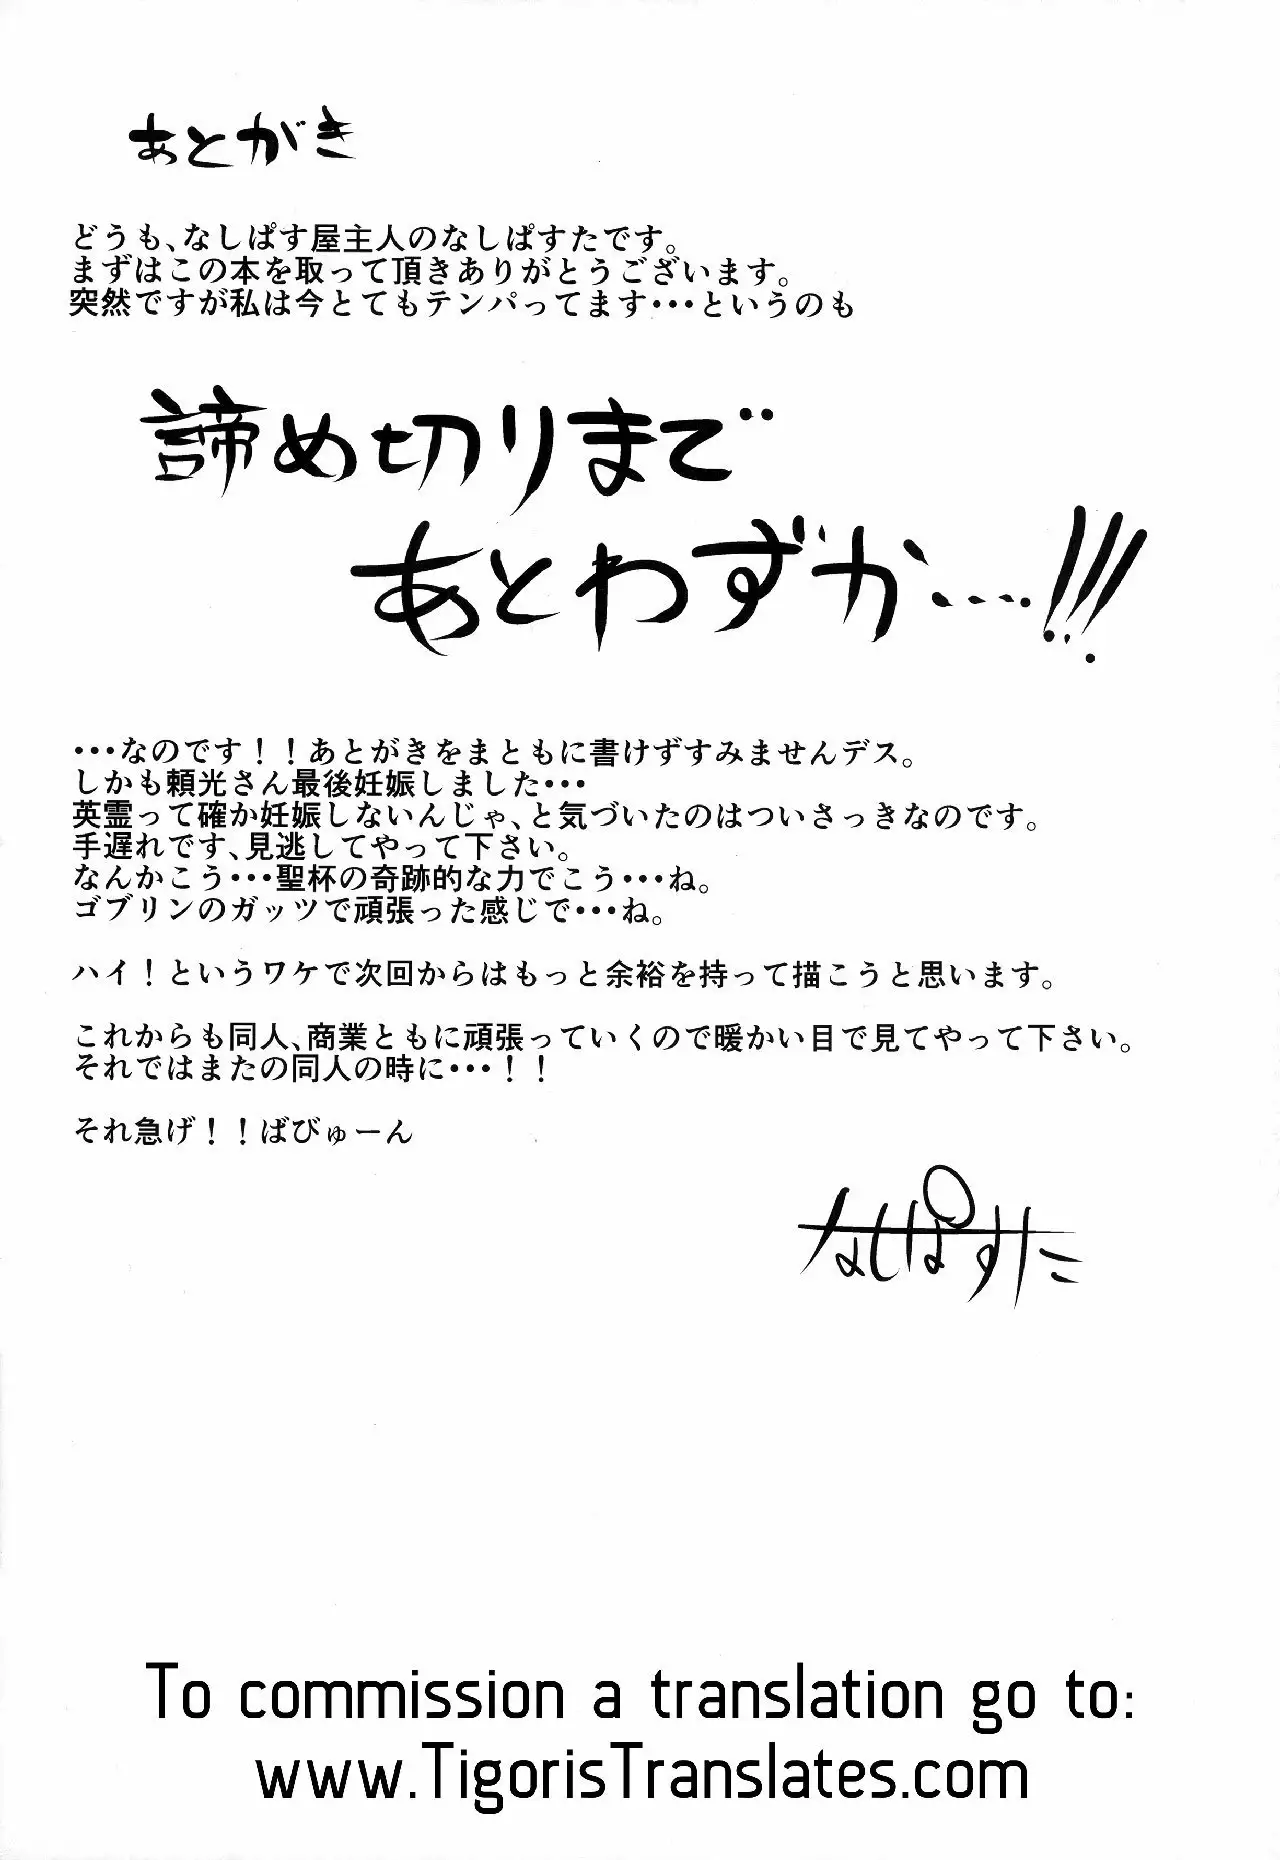 あとがき
どうも、なしぱす屋主人のなしぱすたです。
まずはこの本を取って頂きありがとうございます。
突然ですが私は今とてもテンパってます・・・というのも
諦め切りまで
あとわずか・・・・!!!
・・・なのです！！あとがきをまともに書けずすみませんデス。
しかも頼光さん最後妊娠しました・・・
英霊って確か妊娠しないんじゃ、と気づいたのはついさっきなのです。
手遅れです、見逃してやって下さい。
なんかこう・・・聖杯の奇跡的な力でこう・・・ね。
ゴブリンのガッツで頑張った感じで・・・ね。
ハイ！というワケで次回からはもっと余裕を持って描こうと思います。
これからも同人、商業ともに頑張っていくので暖かい目で見てやって下さい。
それではまたの同人の時に・・・！！
それ急げ！！ばびゅーん
なしぱすた
To commission a translation go to:
www.TigorisTranslates.com